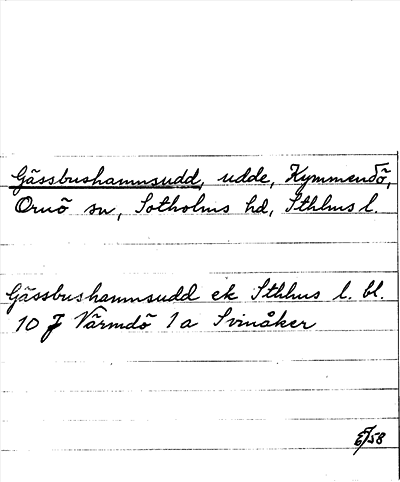 Gässbushamnsudd, udde, Kymmendö,
Ornö sn, Sotholms hd, Sthlms l.
Gässbushamnsudd ek Sthlms l. bl.
10 J Värmdö 1a Svinåker
58